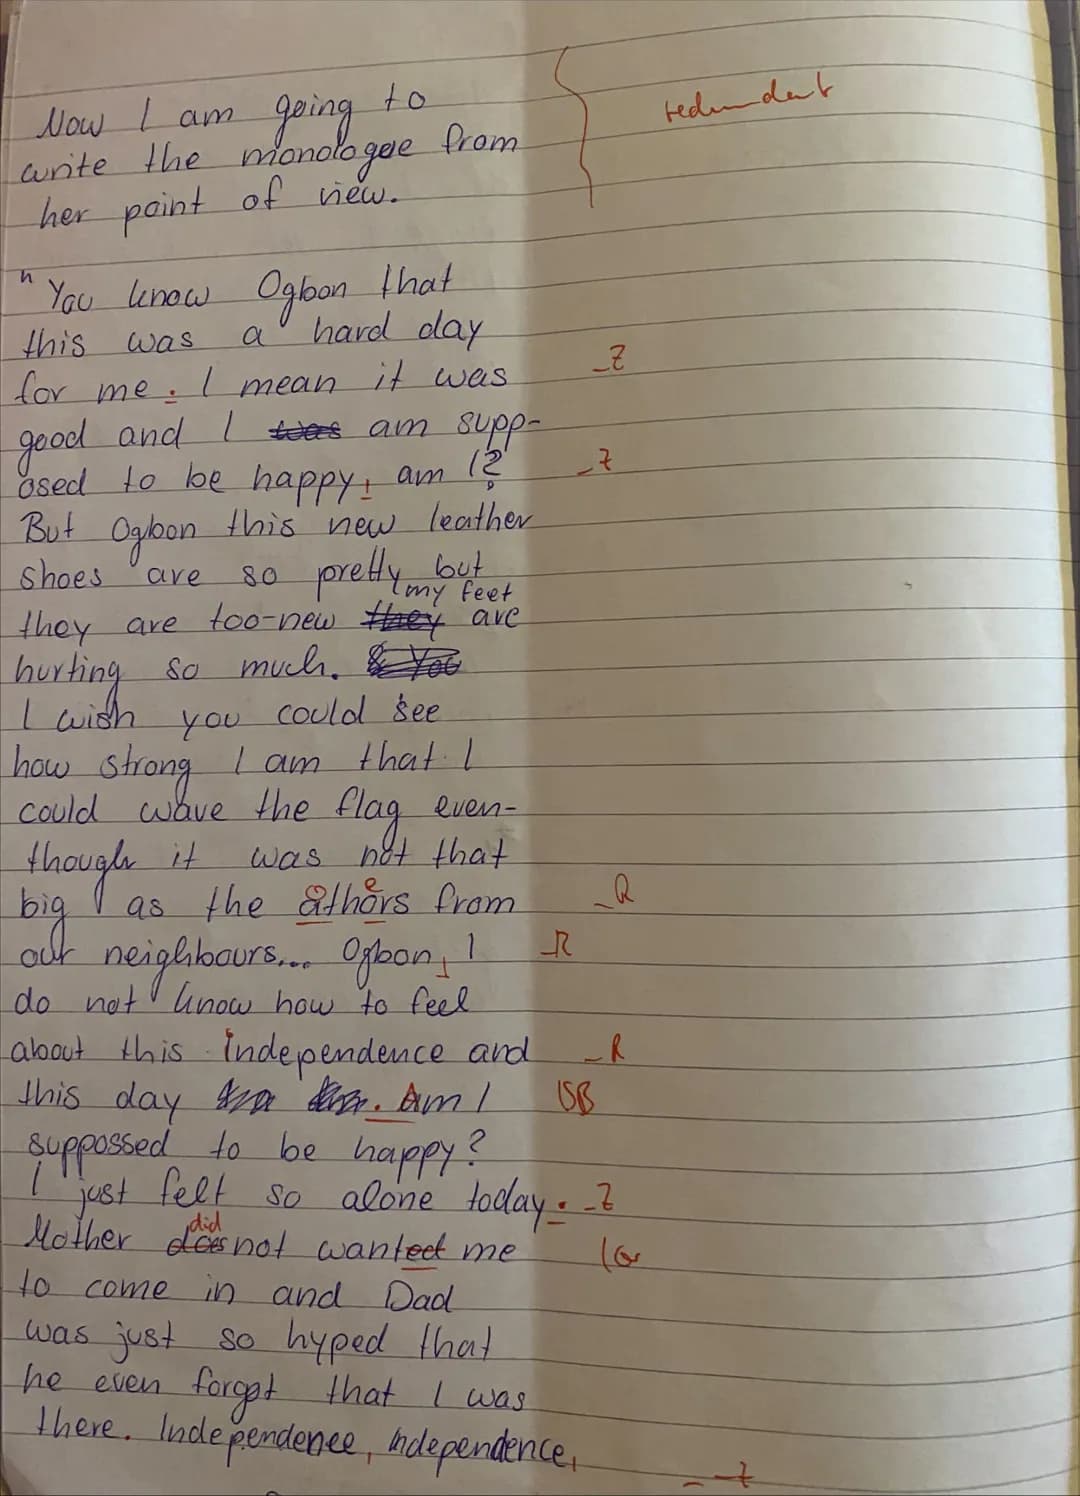 Now I am going to
redundant
write the monologee from
her point of view.
"You know Ogbon that
this was a hard day
for me. I mean it was
-Z
good and I was am supp-
osed to be happy, am I?
-Z
But Ogbon this new leather
shoes are so pretty but
my feet
they are too-new they are
hurting so much. & You
I wish you could see
how strong I am that I
could wave the flag even-
though it was not that
big as the others from
-R
our neighbours... Ogbon, I
-R
do not know how to feel
about this independence and
-R
this day . Am I
SB
suppossed to be happy?
I just felt so alone today.
-Z
did
Mother does not wanted me
Gr
to come in and Dad
was just so hyped that
he even forgot that I was
there. Independence, independence,
-Z